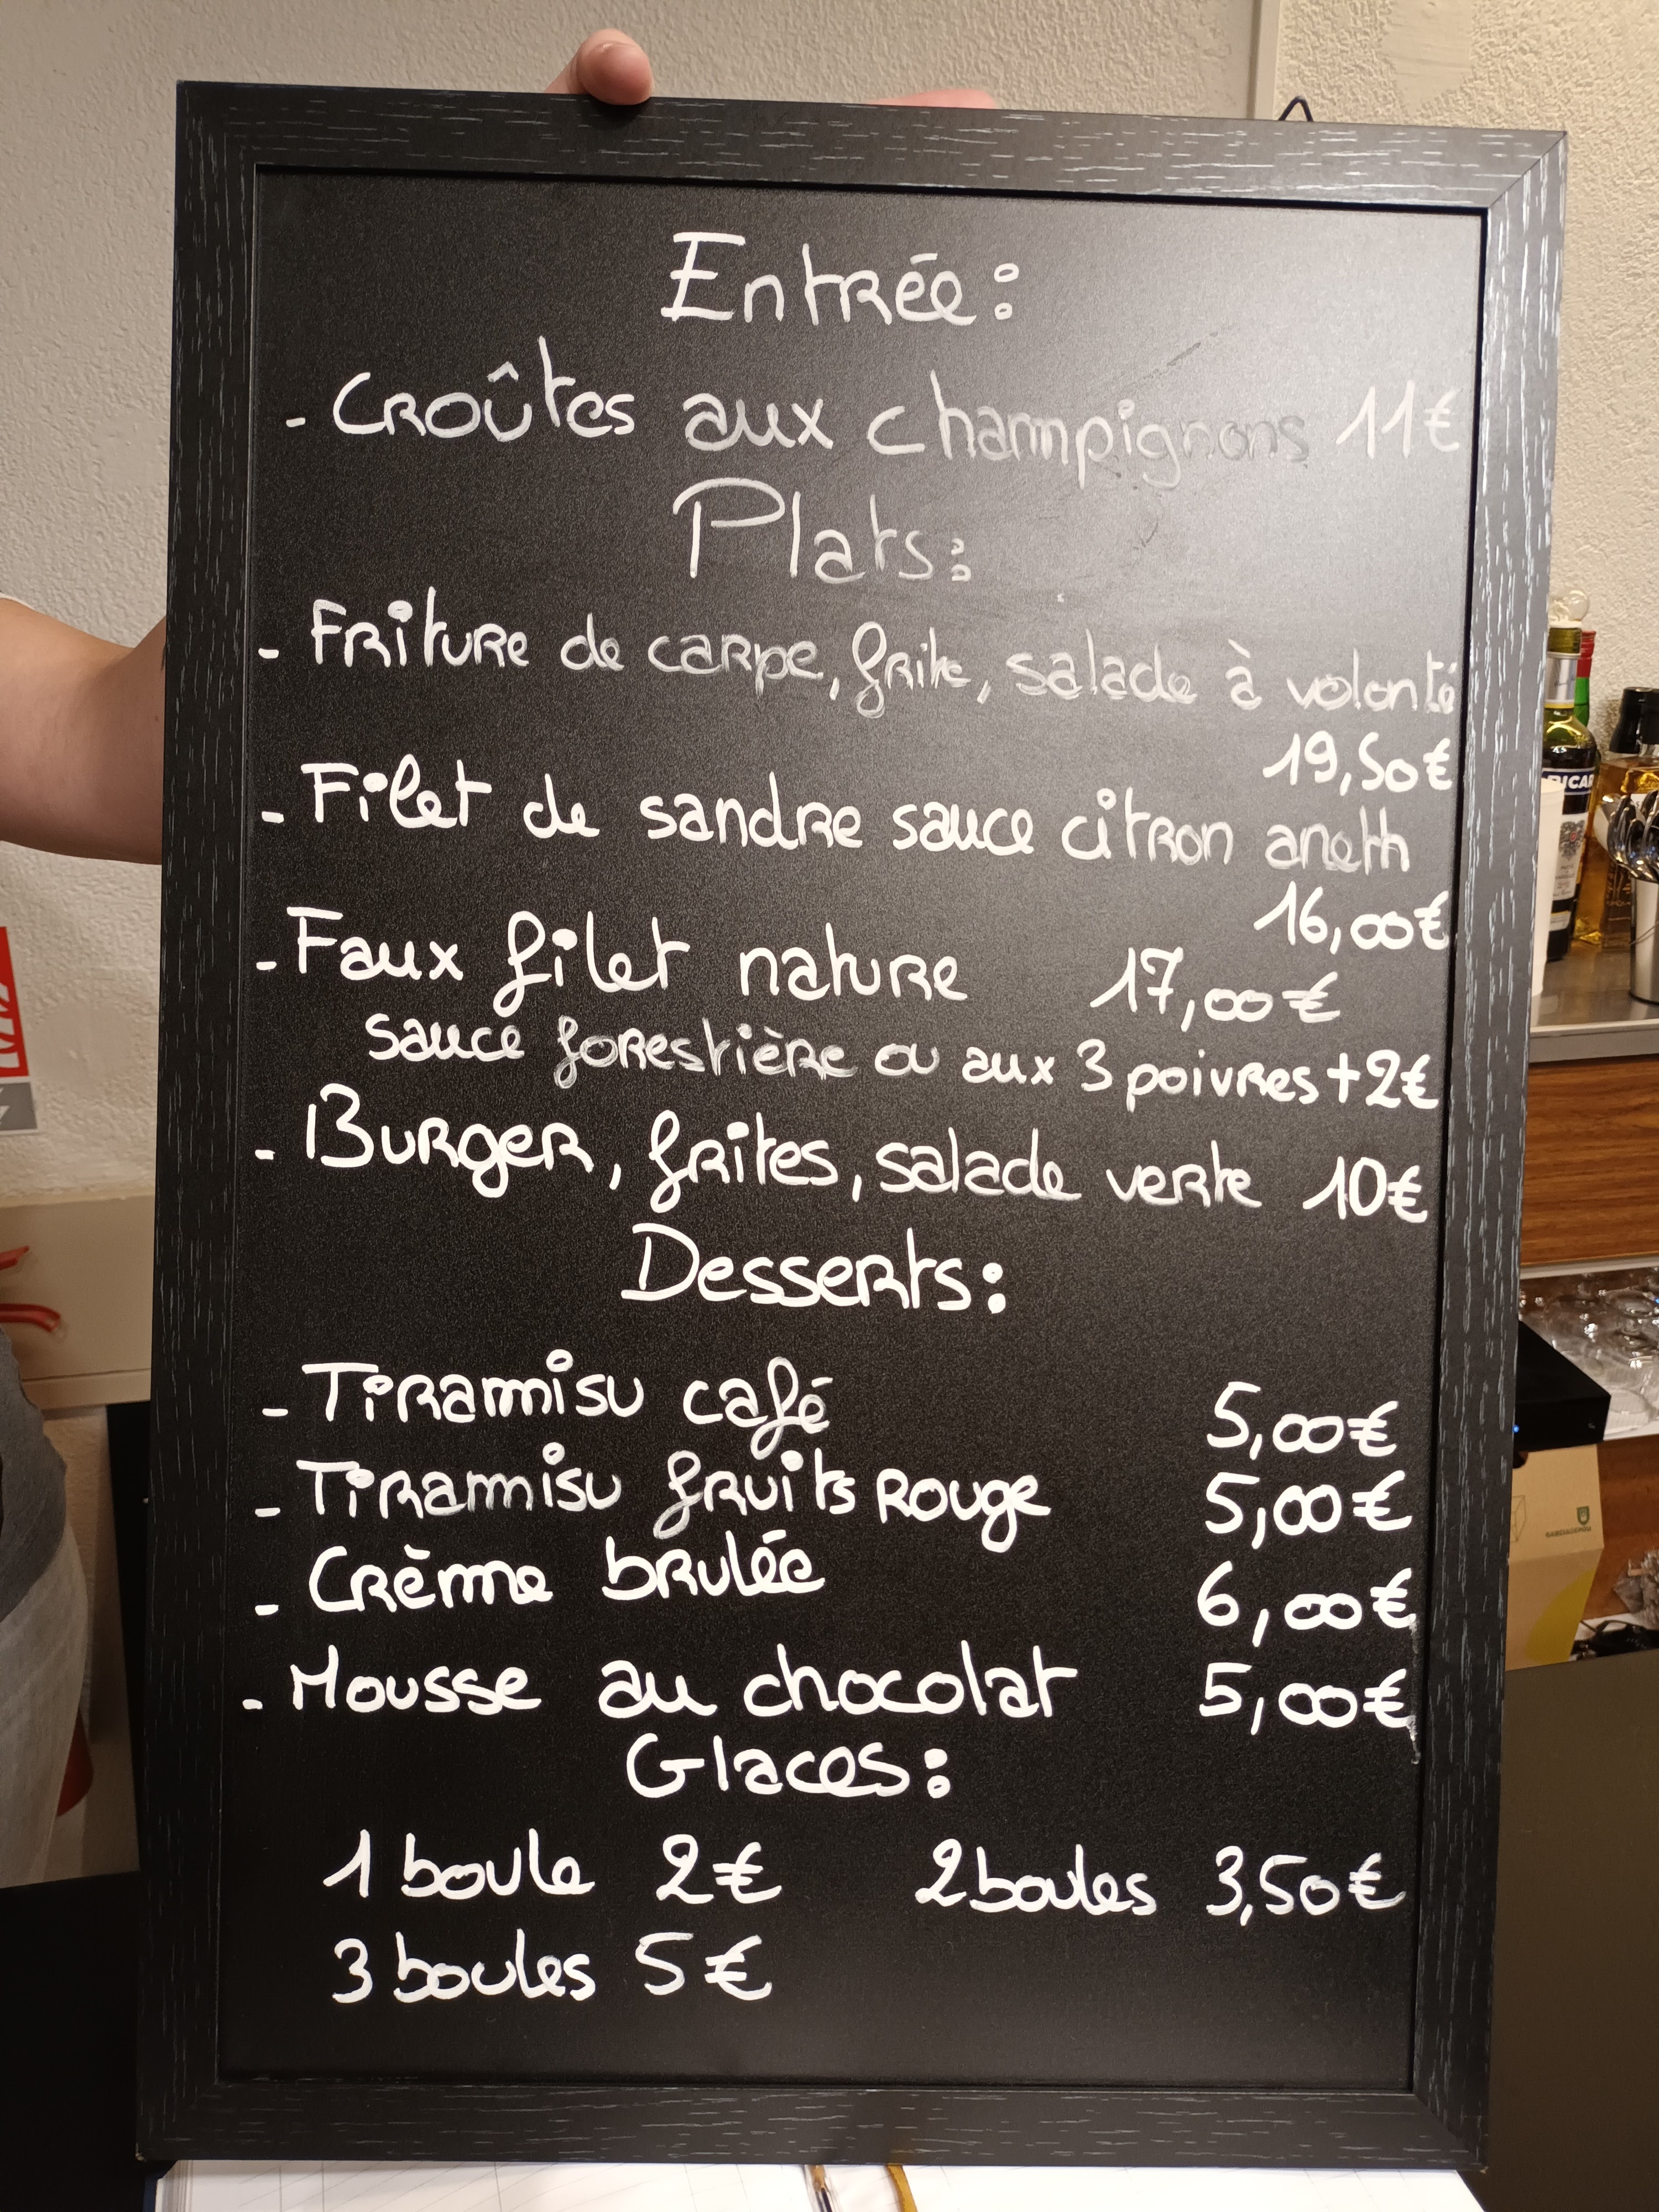 Entrée:
- Croûtes aux champignons 11€
Plats:
- Friture de carpe, frite, salade à volonté
19,50€
- Filet de sandre sauce citron aneth
16,00€
- Faux filet nature 17,00€
sauce forestière ou aux 3 poivres +2€
- Burger, frites, salade verte 10€
Desserts:
- Tiramisu café 5,00€
- Tiramisu fruits rouge 5,00€
- Crème brulée 6,00€
- Mousse au chocolat 5,00€
Glaces:
1 boule 2€ 2 boules 3,50€
3 boules 5€